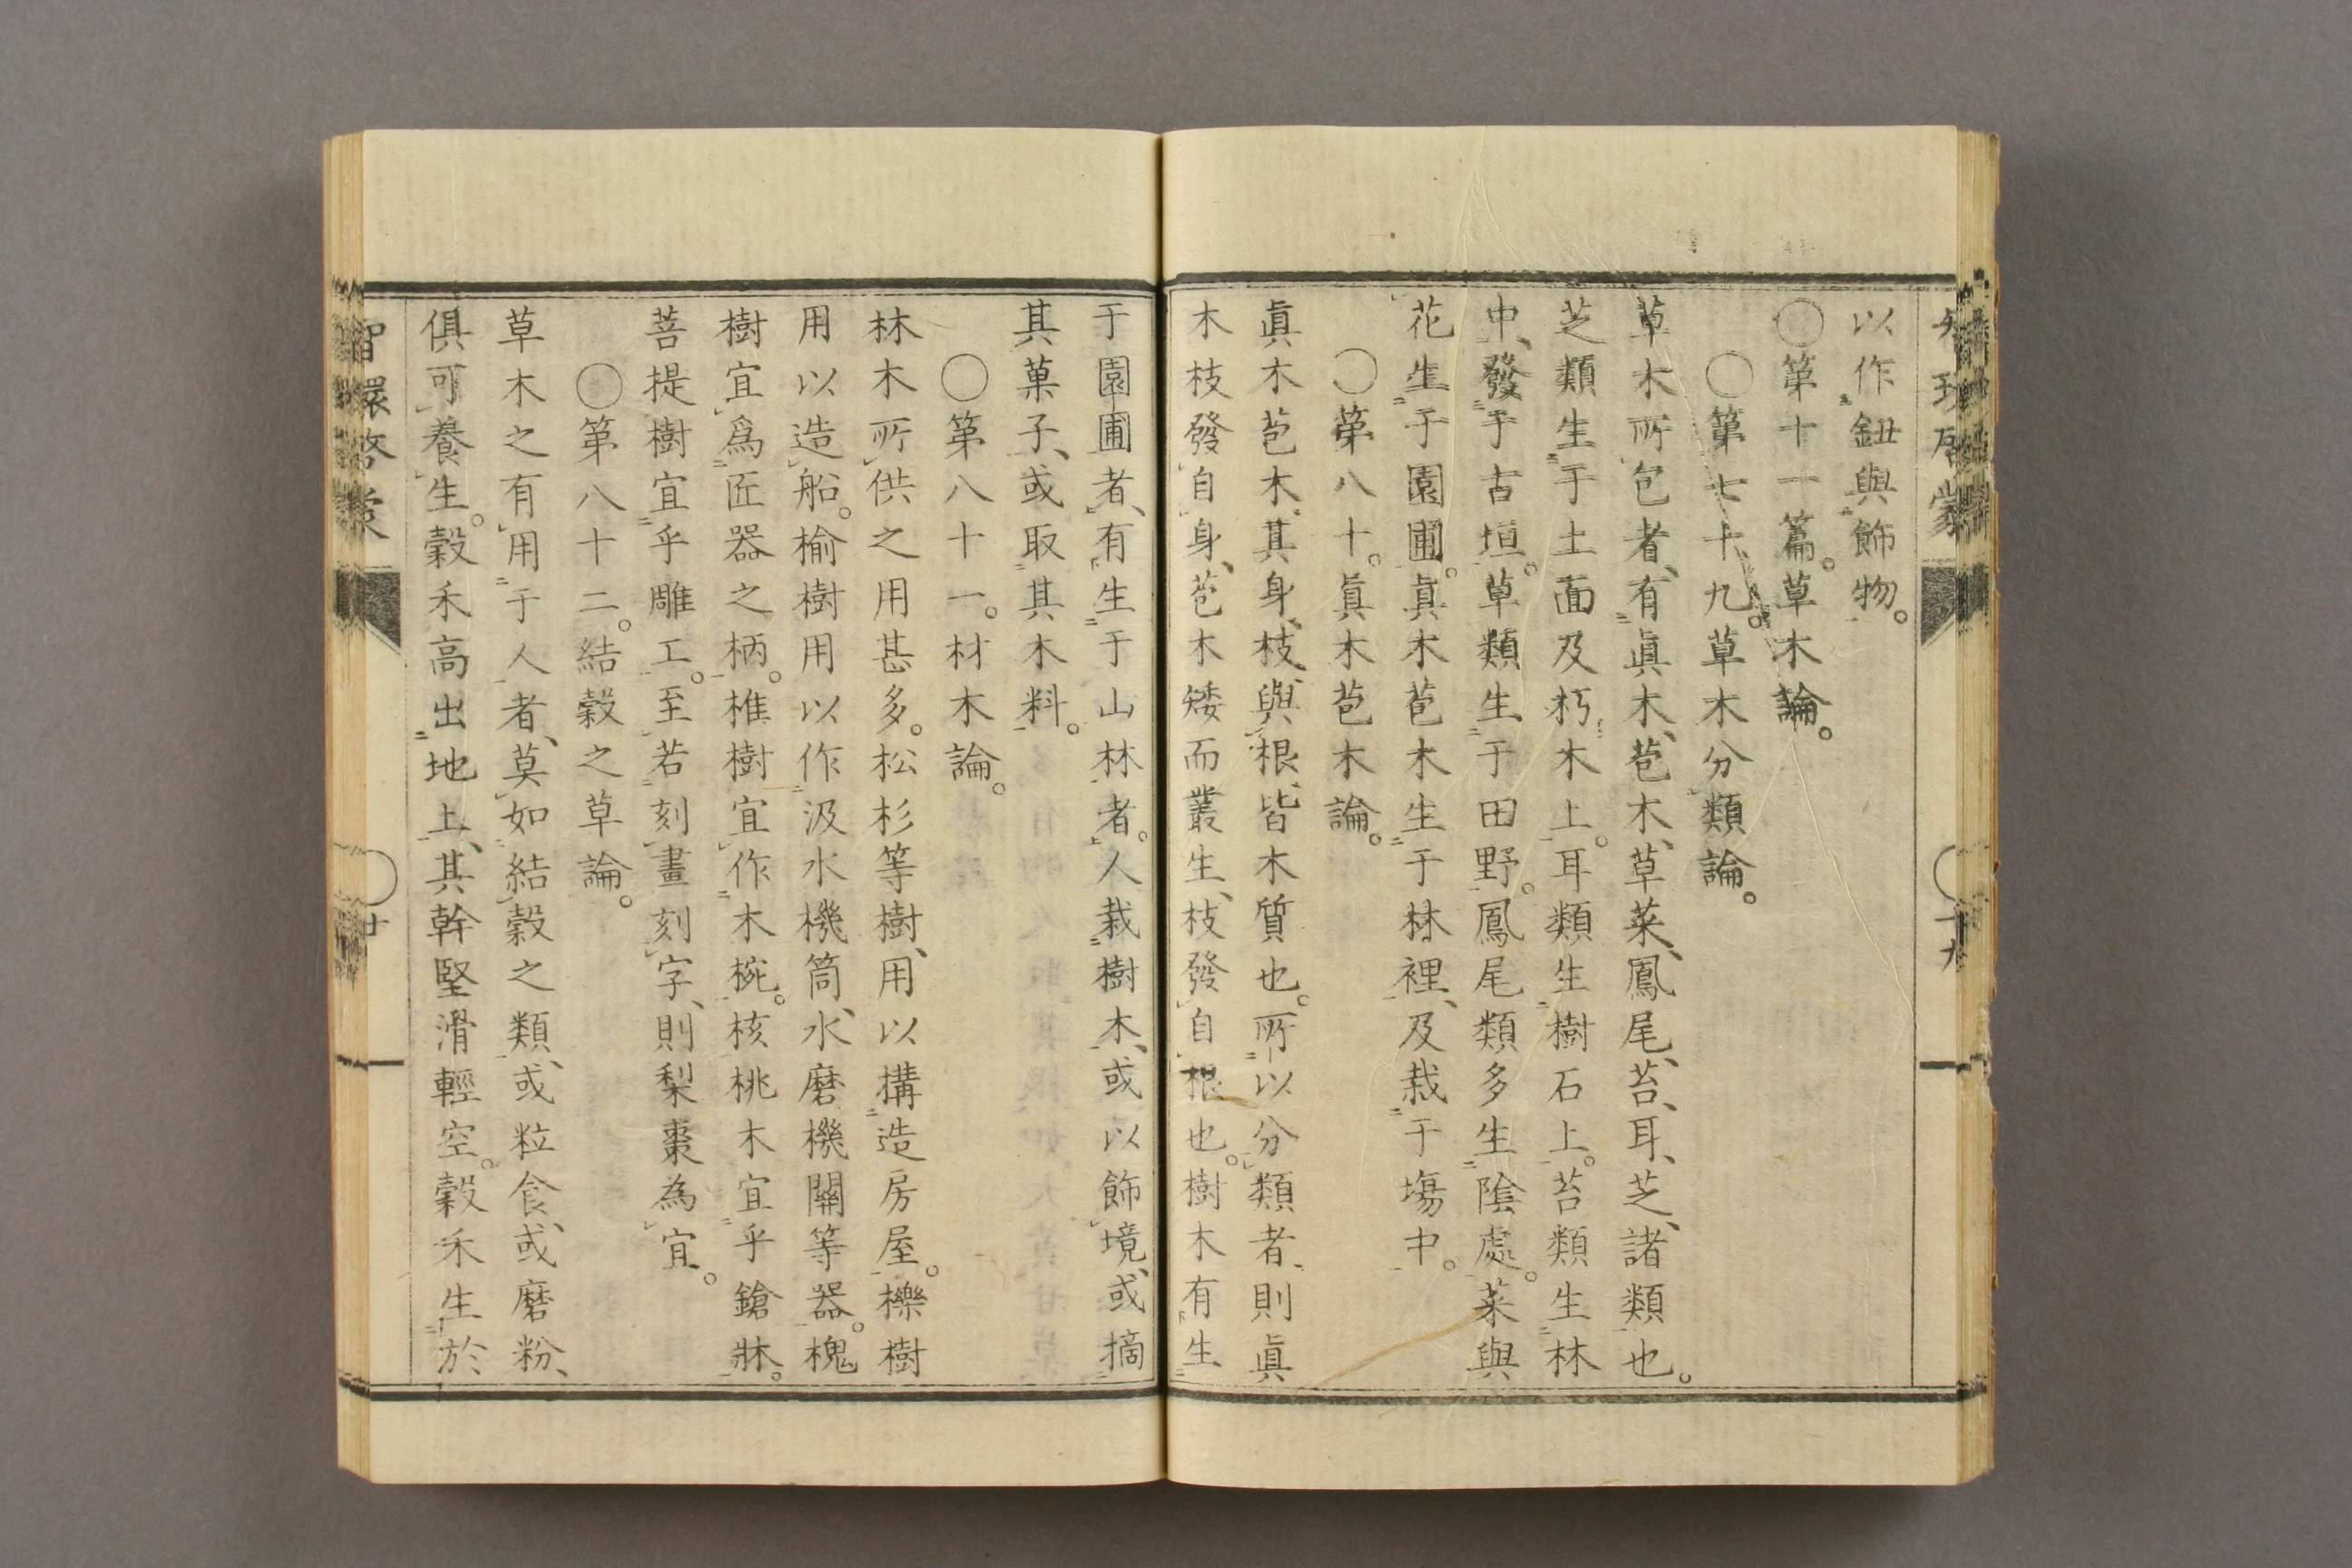 以作鈕與飾物。
〇第十一篇。草木論。
〇第七十九。草木分類論。
草木所包者、有眞木、苞木、草菜、鳳尾、苔、耳、芝、諸類也。
芝類生于土面及朽木上。耳類生樹石上。苔類生林
中、發于古垣。草類生于田野。鳳尾類多生陰處。菜與
花生于園圃。眞木苞木生于林裡、及栽于塲中。
〇第八十。眞木苞木論。
眞木苞木、其身、枝、與根、皆木質也。所以分類者、則眞
木枝發自身、苞木矮而叢生、枝發自根也。樹木有生
于園圃者、有生于山林者。人栽樹木、或以飾境、或摘
其菓子、或取其木料。
〇第八十一。材木論。
林木所供之用甚多。松杉等樹、用以構造房屋。櫟樹
用以造船。榆樹用以作汲水機筒、水磨機關等器。槐
樹宜爲匠器之柄。椎樹宜作木椀。核桃木宜乎鎗牀。
菩提樹宜乎雕工。至若刻畫刻字、則梨棗為宜。
〇第八十二。結穀之草論。
草木之有用于人者、莫如結穀之類、或粒食、或磨粉、
俱可養生。穀禾高出地上、其幹堅滑輕空。穀禾生於
智環啓蒙
〇廿